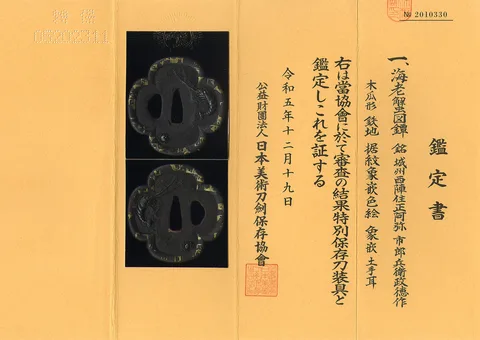 № 2010330
鑑定書
一、海老蟹図鐔 銘 城州西陣住正阿弥市郎兵衛政徳作
木瓜形 鉄地 据紋象嵌色絵 象嵌土手耳
右は當協會に於て審査の結果特別保存刀装具と
鑑定しこれを証する
令和五年十二月十九日
公益財團法人 日本美術刀劍保存協會